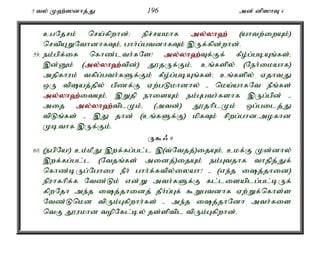 5 வல் முஹ்ஸனாத்து 196 அன் னிஸாவு 4
உபதேசம் செய்கிறான்; நிச்சயமாக அல்லாஹ் (யாவற்றையும்)
செவியுறுவோனாகவும், பார்ப்பவனாகவும் இருக்கின்றான்.
59. நம்பிக்கை கொண்டவர்களே! அல்லாஹ்வுக்குக் கீழ்ப்படியுங்கள்;
இன்னும் (அல்லாஹ்வின்) தூதருக்கும், உங்களில் (நேர்மையாக)
அதிகாரம் வகிப்பவர்களுக்கும் கீழ்ப்படியுங்கள்; உங்களில் ஏதாவது
ஒரு விஷயத்தில் பிணக்கு ஏற்படுமானால் - மெய்யாகவே நீங்கள்
அல்லாஹ்வையும், இறுதி நாளையும் நம்புபவர்களாக இருப்பின் -
அதை அல்லாஹ்விடமும், (அவன்) தூதரிடமும் ஒப்படைத்து
விடுங்கள் - இது தான் (உங்களுக்கு) மிகவும் சிறப்பான.அழகான
முடிவாக இருக்கும்.
60. (நபியே!) உம்மீது இறக்கப்பட்ட இ(வ்வேதத்)தையும், உமக்கு முன்னால்
இறக்கப்பட்ட (வேதங்கள் அனைத்)தையும் நம்புவதாக வாதித்துக்
கொண்டிருப்போரை நீர் பார்க்கவில்லையா? - (எந்த ஷைத்தானை)
நிராகரிக்க வேண்டும் என்று அவர்களுக்கு கட்டளையிடப்பட்டிருக்
கிறதோ அந்த ஷைத்தானைத் தீர்ப்புக் கூறுபவனாக ஏற்றுக்கொள்ள
வேண்டுமென விரும்புகிறார்கள் - அந்த ஷைத்தானோ அவர்களை
வெகு தூரமான வழிகேட்டில் தள்ளிவிட விரும்புகிறான்.